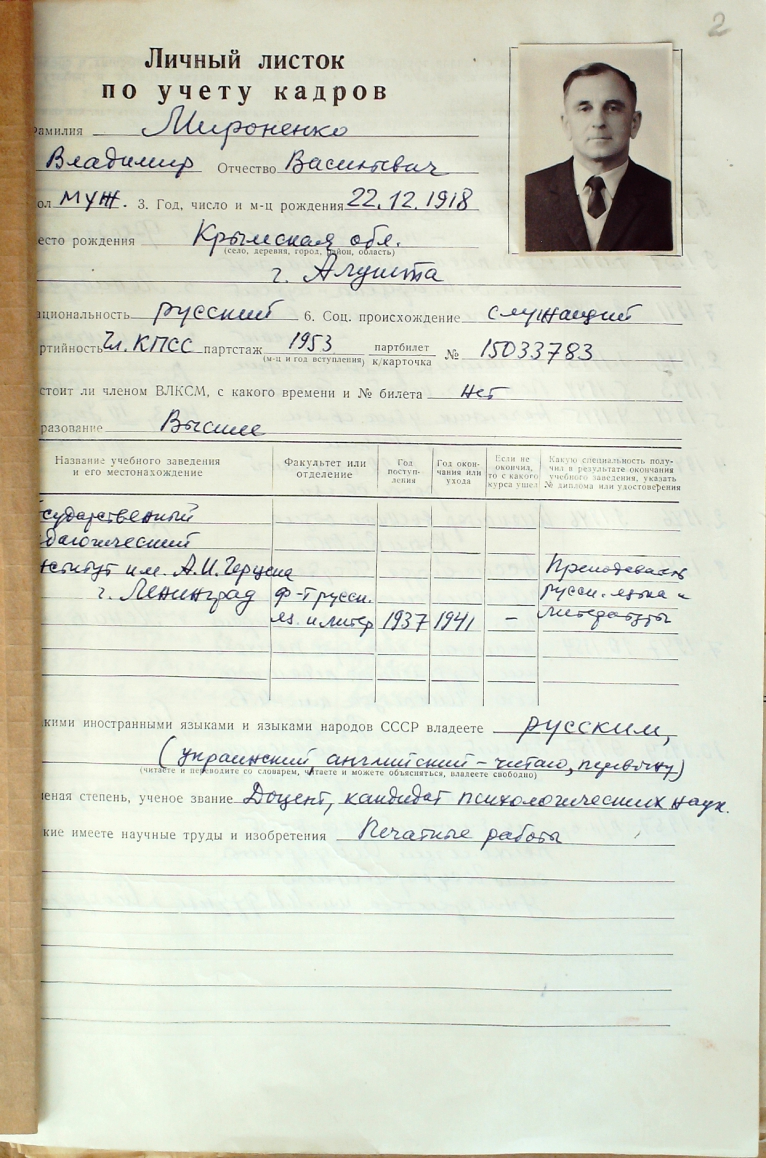 2
Личный листок
по учету кадров
амилия Мироненко
Владимир Отчество Васильевич
ол муж. 3. Год, число и м-ц рождения 22.12.1918
есто рождения Крымская обл.
(село, деревня, город, район, область)
г. Алушта
циональность русский 6. Соц. происхождение служащий
ртийность Чл. КПСС партстаж 1953 партбилет № 15033783
(м-ц и год вступления) к/карточка
стоит ли членом ВЛКСМ, с какого времени и № билета Нет
разование Высшее
Название учебного заведения и его местонахождение
Факультет или отделение
Год поступ-ления
Год окон-чания или ухода
Если не окончил, то с какого курса ушел
Какую специальность полу-чил в результате окончания учебного заведения, указать № диплома или удостоверения
сударственный
дагогический
нститут им. А.И. Герцена Преподаватель
г. Ленинград ф-т русск. русск. языка и
яз. и литер 1937 1941 — литературы
кими иностранными языками и языками народов СССР владеете русским,
(украинский, английский – читаю, перевожу)
(читаете и переводите со словарем, читаете и можете объясняться, владеете свободно)
еная степень, ученое звание Доцент, кандидат психологических наук.
кие имеете научные труды и изобретения Печатные работы